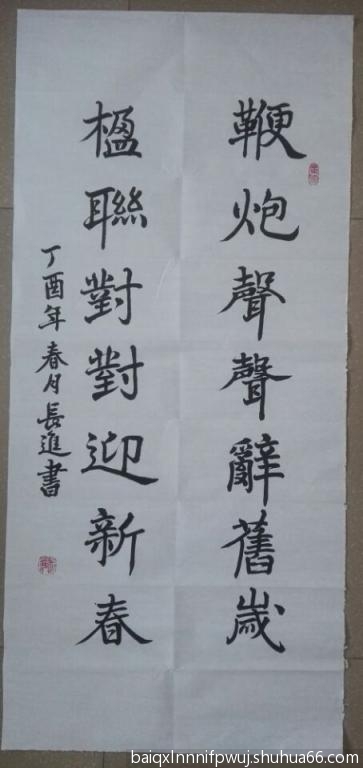 鞭炮聲聲辭舊歲
楹聯對對迎新春
丁酉年春月長進書
baiqxlnnnifpwuj.shuhua66.com